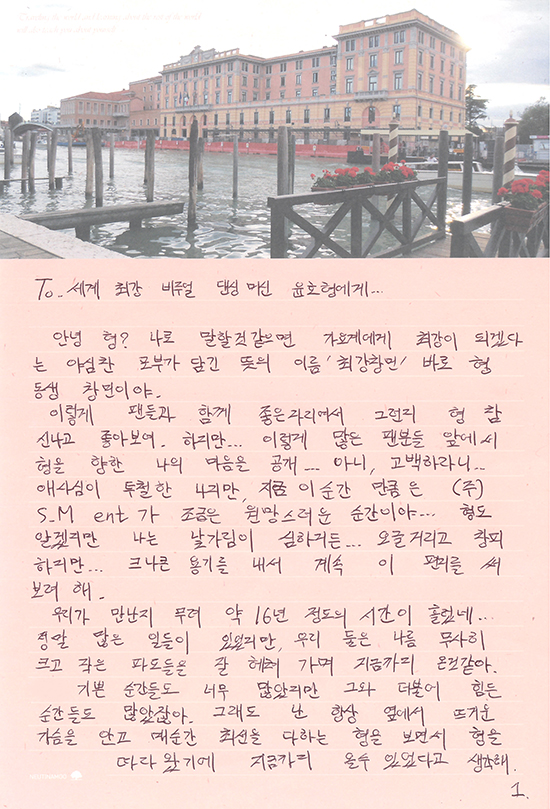 To_ 세계 최강 비주얼 댄싱 머신 윤호형에게...
안녕 형? 나로 말할것 같으면 가요계에게 최강이 되겠다
는 야심찬 포부가 담긴 뜻의 이름 '최강창민' 바로 형
동생 창민이야.
이렇게 팬들과 함께 좋은자리여서 그런지 형 참
신나고 좋아보여. 하지만... 이렇게 많은 팬분들 앞에서
형을 향한 나의 마음을 공개 ... 아니, 고백하라니...
애사심이 투철한 나지만, 지금 이 순간 만큼은 (주)
S_M ent가 조금은 원망스러운 순간이야... 형도
알겠지만 나는 낯가림이 심하거든... 오글거리고 창피
하지만... 크나큰 용기를 내서 계속 이 편지를 써
보려 해.
우리가 만난지 무려 약 16년 정도의 시간이 흘렀네...
정말 많은 일들이 있었지만, 우리 둘은 나름 무사히
크고 작은 파도들을 잘 헤쳐 가며 지금까지 온것같아.
기쁜 순간들도 너무 많았지만 그와 더불어 힘든
순간들도 많았잖아. 그래도 난 항상 옆에서 뜨거운
가슴을 안고 매순간 최선을 다하는 형을 보면서 형을
따라 왔기에 지금까지 올수 있었다고 생각해.
1.